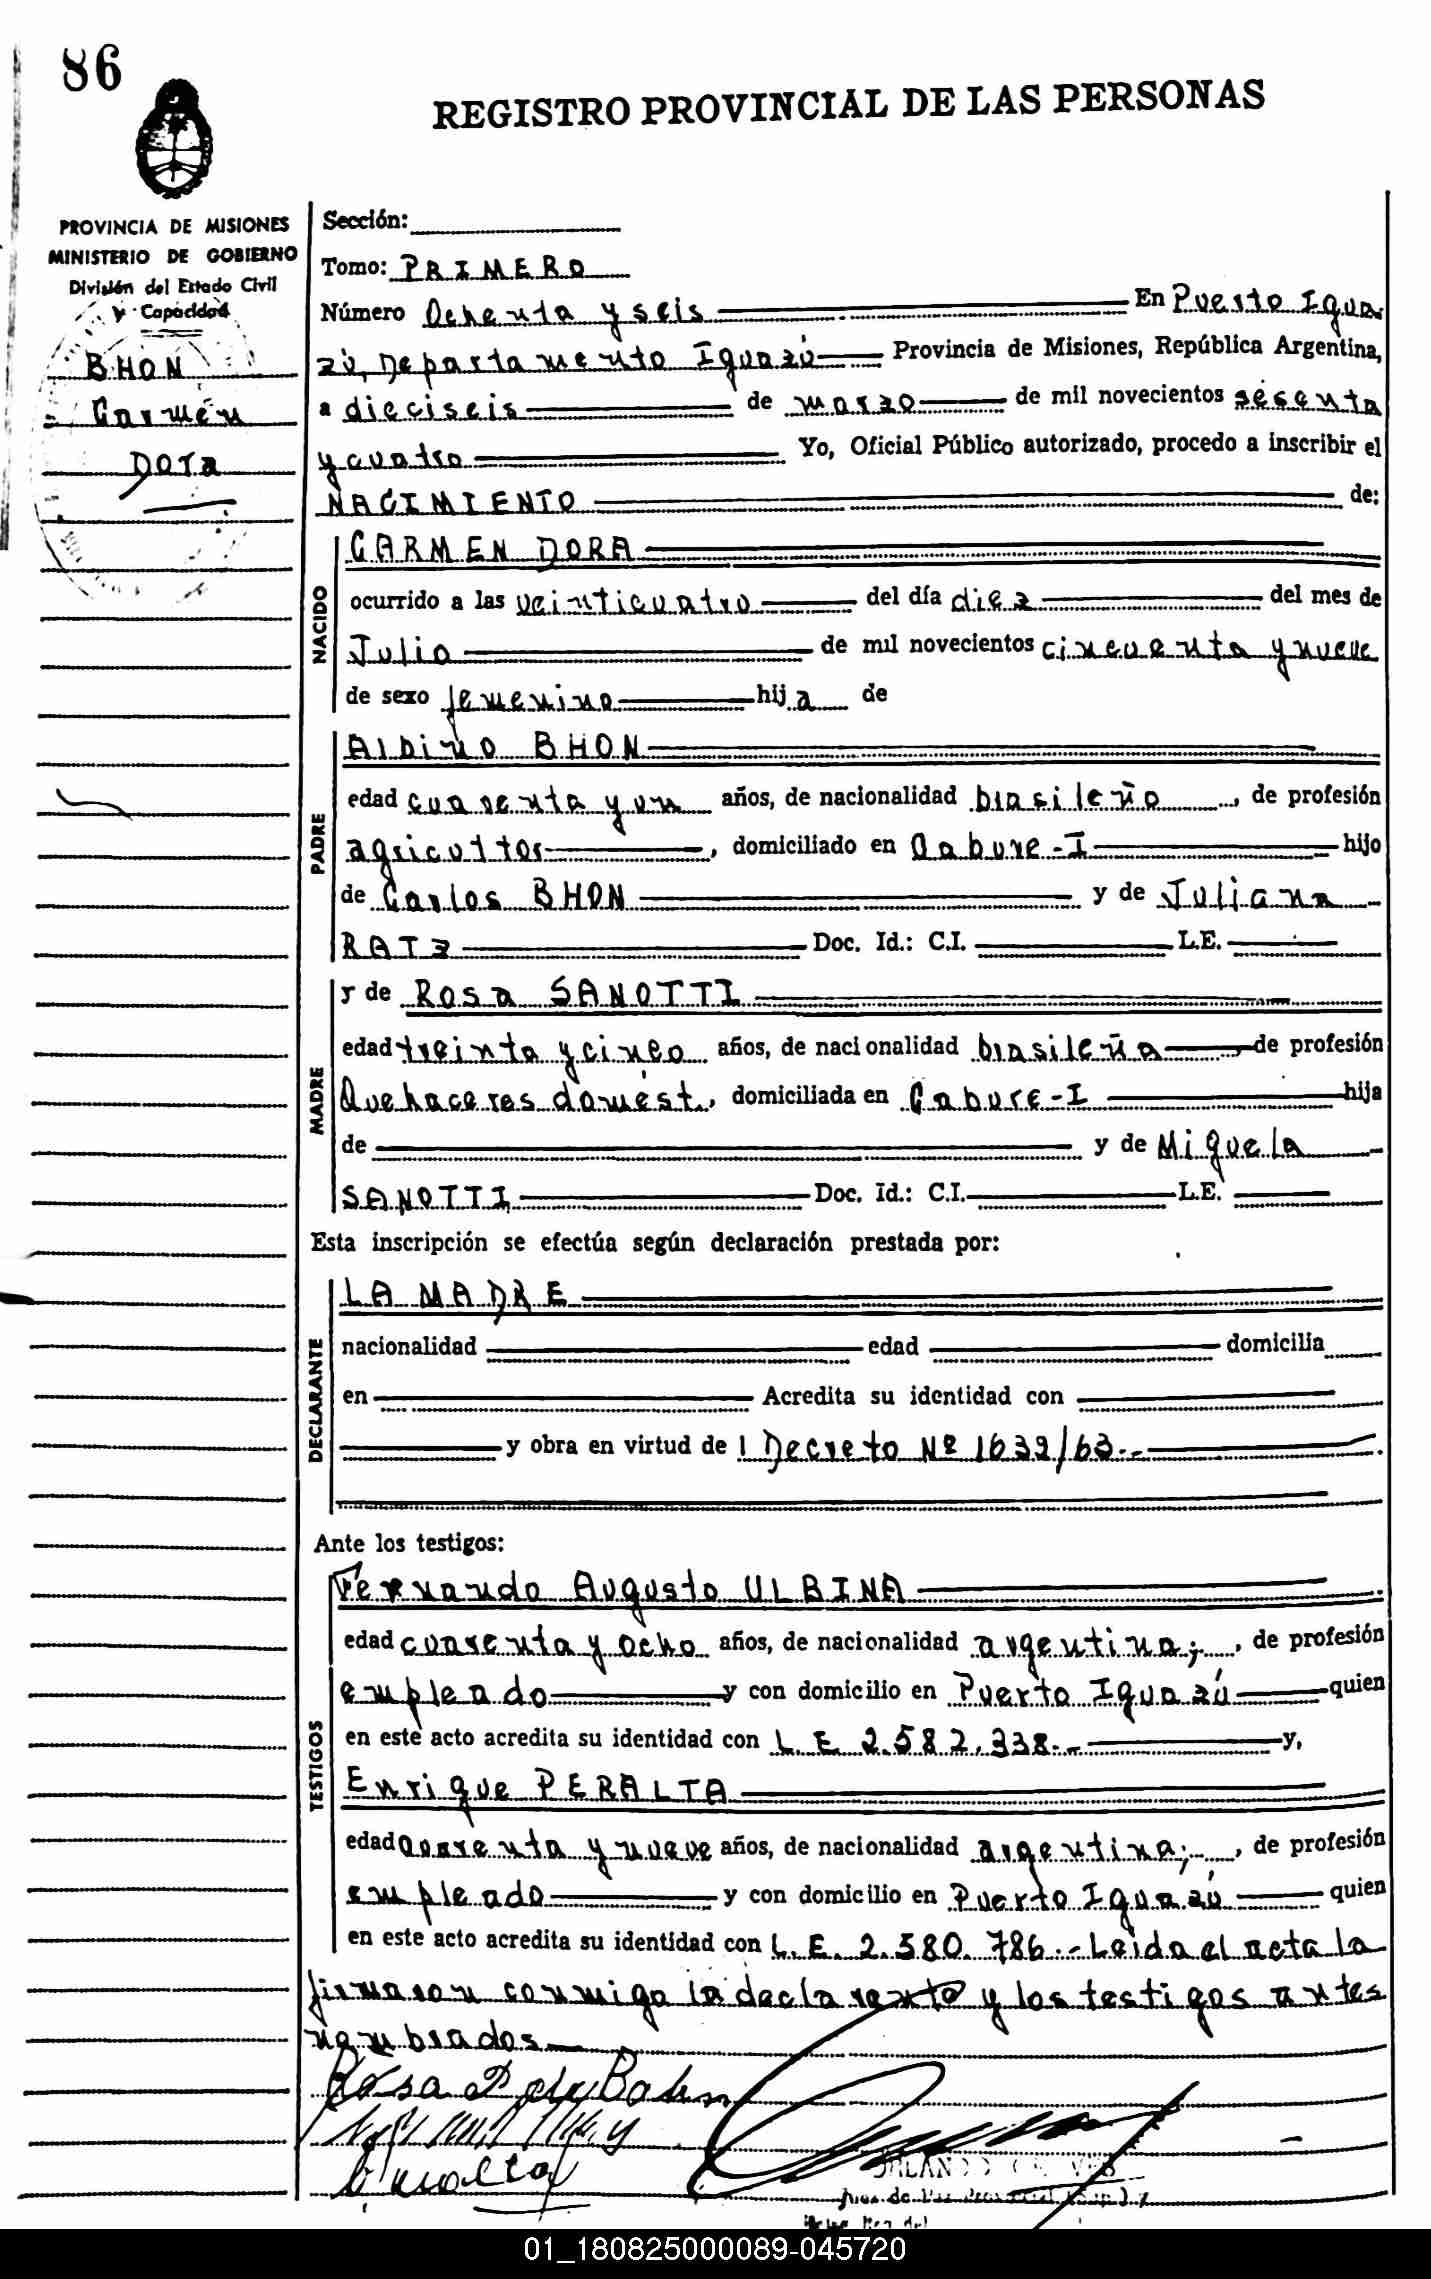 86
REGISTRO PROVINCIAL DE LAS PERSONAS
PROVINCIA DE MISIONES
MINISTERIO DE GOBIERNO
División del Estado Civil
y Capacidad
BHON
Carmen
Dora
Sección:
Tomo: PRIMERO
Número Ochenta y seis En Puerto Igua
zú, Departamento Iguazú Provincia de Misiones, República Argentina,
a dieciseis de marzo de mil novecientos sesenta
y cuatro Yo, Oficial Público autorizado, procedo a inscribir el
NACIMIENTO de:
NACIDO
CARMEN DORA
ocurrido a las veinticuatro del día diez del mes de
Julio de mil novecientos cincuenta y nueve
de sexo femenino hija de
PADRE
Albino BHON
edad cuarenta y un años, de nacionalidad brasileño, de profesión
agricultor, domiciliado en Cabure-I hijo
de Carlos BHON y de Juliana
RATZ Doc. Id.: C.I. L.E.
MADRE
y de Rosa SANOTTI
edad treinta y cinco años, de nacionalidad brasileña de profesión
Quehaceres domést., domiciliada en Cabure-I hija
de y de Miguela
SANOTTI Doc. Id.: C.I. L.E.
Esta inscripción se efectúa según declaración prestada por:
DECLARANTE
LA MADRE
nacionalidad edad domicilia
en Acredita su identidad con
y obra en virtud de l Decreto Nº 1639/63.-
Ante los testigos:
TESTIGOS
Fernando Augusto ULBINA
edad cuarenta y ocho años, de nacionalidad argentina;, de profesión
empleado y con domicilio en Puerto Iguazú quien
en este acto acredita su identidad con L. E. 2.582.338.- y,
Enrique PERALTA
edad cuarenta y nueve años, de nacionalidad argentina;, de profesión
empleado y con domicilio en Puerto Iguazú quien
en este acto acredita su identidad con L. E. 2.580.786.- Leida el acta la
firmaron conmigo la declarante y los testigos antes
nombrados
Rosa
ORLANDO
Juez de Paz
01_180825000089-045720